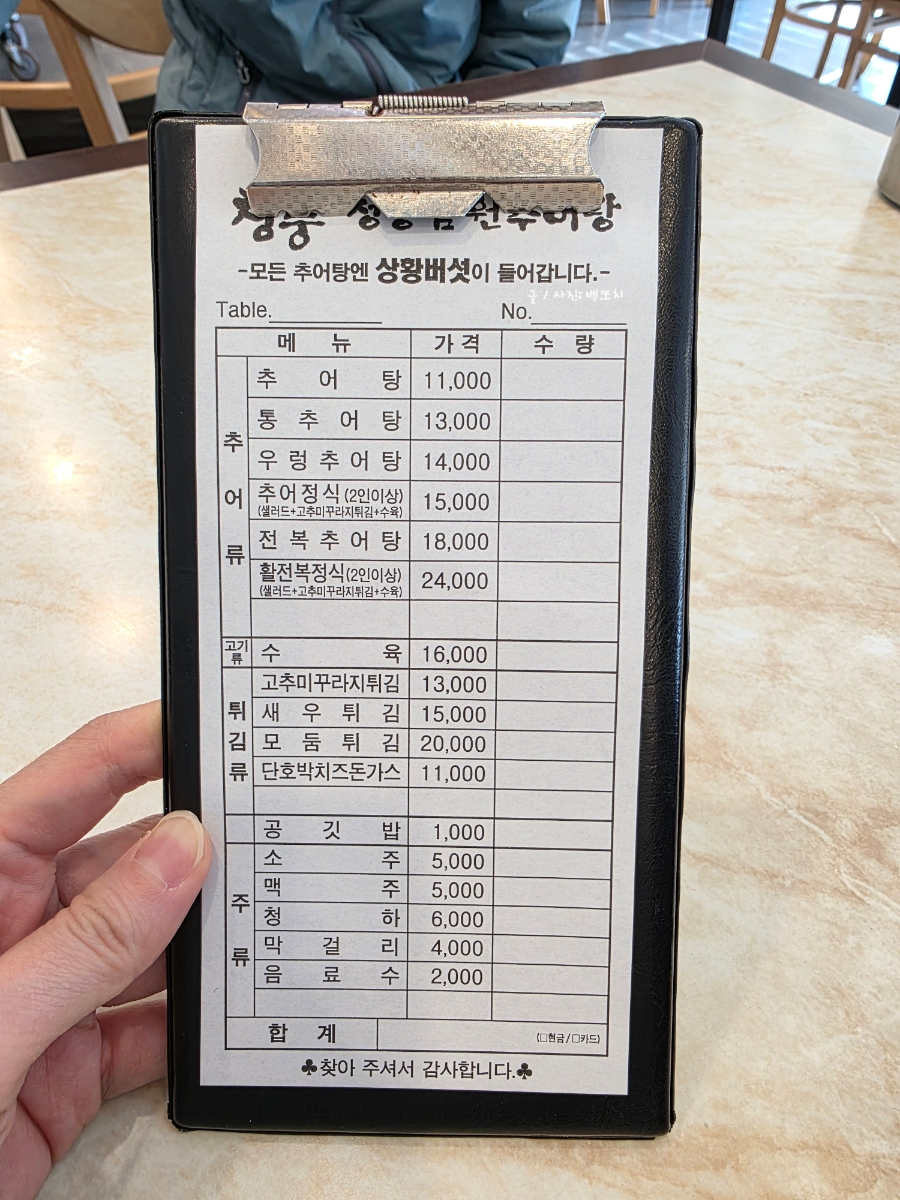 청풍
원추어탕
-모든 추어탕엔 상황버섯이 들어갑니다.-
글 / 사진: 백또치
Table. No.
메 뉴 가 격 수 량
추어류
추 어 탕 11,000
통 추 어 탕 13,000
우 렁 추 어 탕 14,000
추어정식(2인이상) 15,000
(샐러드+고추미꾸라지튀김+수육)
전 복 추 어 탕 18,000
활전복정식(2인이상) 24,000
(샐러드+고추미꾸라지튀김+수육)
고기류
수 육 16,000
튀김류
고추미꾸라지튀김 13,000
새 우 튀 김 15,000
모 둠 튀 김 20,000
단호박치즈돈가스 11,000
공 깃 밥 1,000
주류
소 주 5,000
맥 주 5,000
청 하 6,000
막 걸 리 4,000
음 료 수 2,000
합 계 (□현금/□카드)
♣찾아 주셔서 감사합니다.♣